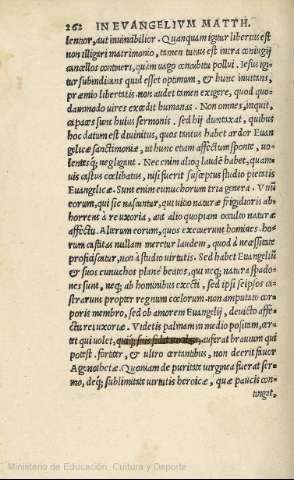 262 IN EVANGELIVM MATTH.
lentior, aut inuincibilior. Quanquam igitur libertus est
non illigari matrimonio, tamen tutius est intra coniugij
cancellos contineri, quàm uago concubitu pollui. Iesus igi‐
tur subindicans quid esset optimum, & hunc inuitans,
præmio libertatis non audet tamen exigere, quod quo‐
dammodo uires excedit humanas. Non omnes, inquit,
capaces sunt huius sermonis, sed hij duntaxat, quibus
hoc datum est diuinitus, quos tantus habet ardor Euan
gelicæ sanctimoniæ, ut hunc etiam affectum sponte, uo‐
lentesq; negligant. Nec enim alioq laudē habet, quam‐
uis castus cœlibatus, nisi fuerit susceptus studio pietatis
Euangelicæ. Sunt enim eunuchorum tria genera. Vnū
eorum, qui sic nascuntur, qui uitio naturæ frigidioris ab
horrent à re uxoria, aut alio quopiam occulto naturæ
affectu. Alterum eorum, quos execuerunt homines. ho‐
rum castitas nullam meretur laudem, quòd à necessitate
proficiscatur, non à studio uirtutis. Sed habet Euangeliū
& suos eunuchos planè beatos, qui neq; natura spado‐
nes sunt, neq; ab hominibus execti, sed ipsi seipsos ca‐
strarunt propter regnum cœlorum. non amputato cor‐
poris membro, sed ob amorem Euangelij, deuicto affe‐
ctu rei uxoriæ. Videtis palmam in medio positam, cer‐
tet qui uolet, auferat brauium qui
potest. fortiter, & ultro certantibus, non deerit fauor
Agonothetæ. Quoniam de puritate uirginea fuerat ser‐
mo, deq; sublimitate uirtutis heroicæ, quæ paucis con‐
tingat,
Ministerio de Educación, Cultura y Deporte